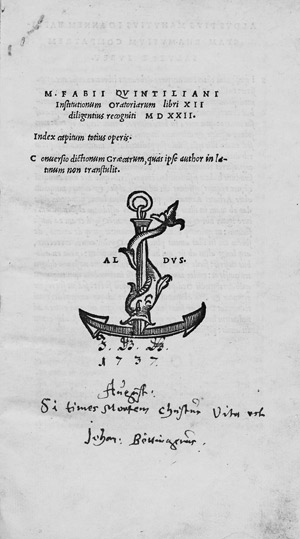 M. FABII QVINTILIANI
Institutionum Oratoriarum libri XII
diligentius recogniti MDXXII.
Index capitum totius operis.
Conuersio dictionum Græcarum, quas ipse author in la-
tinum non transtulit.
AL DVS.
1737.
August.
Si times Mortem Christus Vita est
Johan: